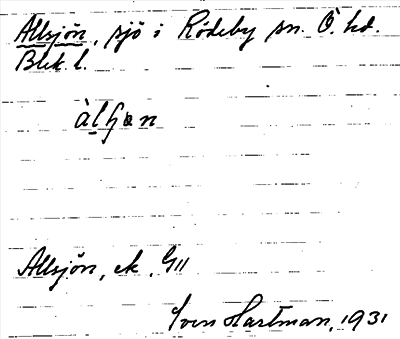 Allsjön, sjö i Rödeby sn. Ö. hd.
Blek. l.
àlɧɵn
Allsjön, ek. G11
Sven Hartman, 1931